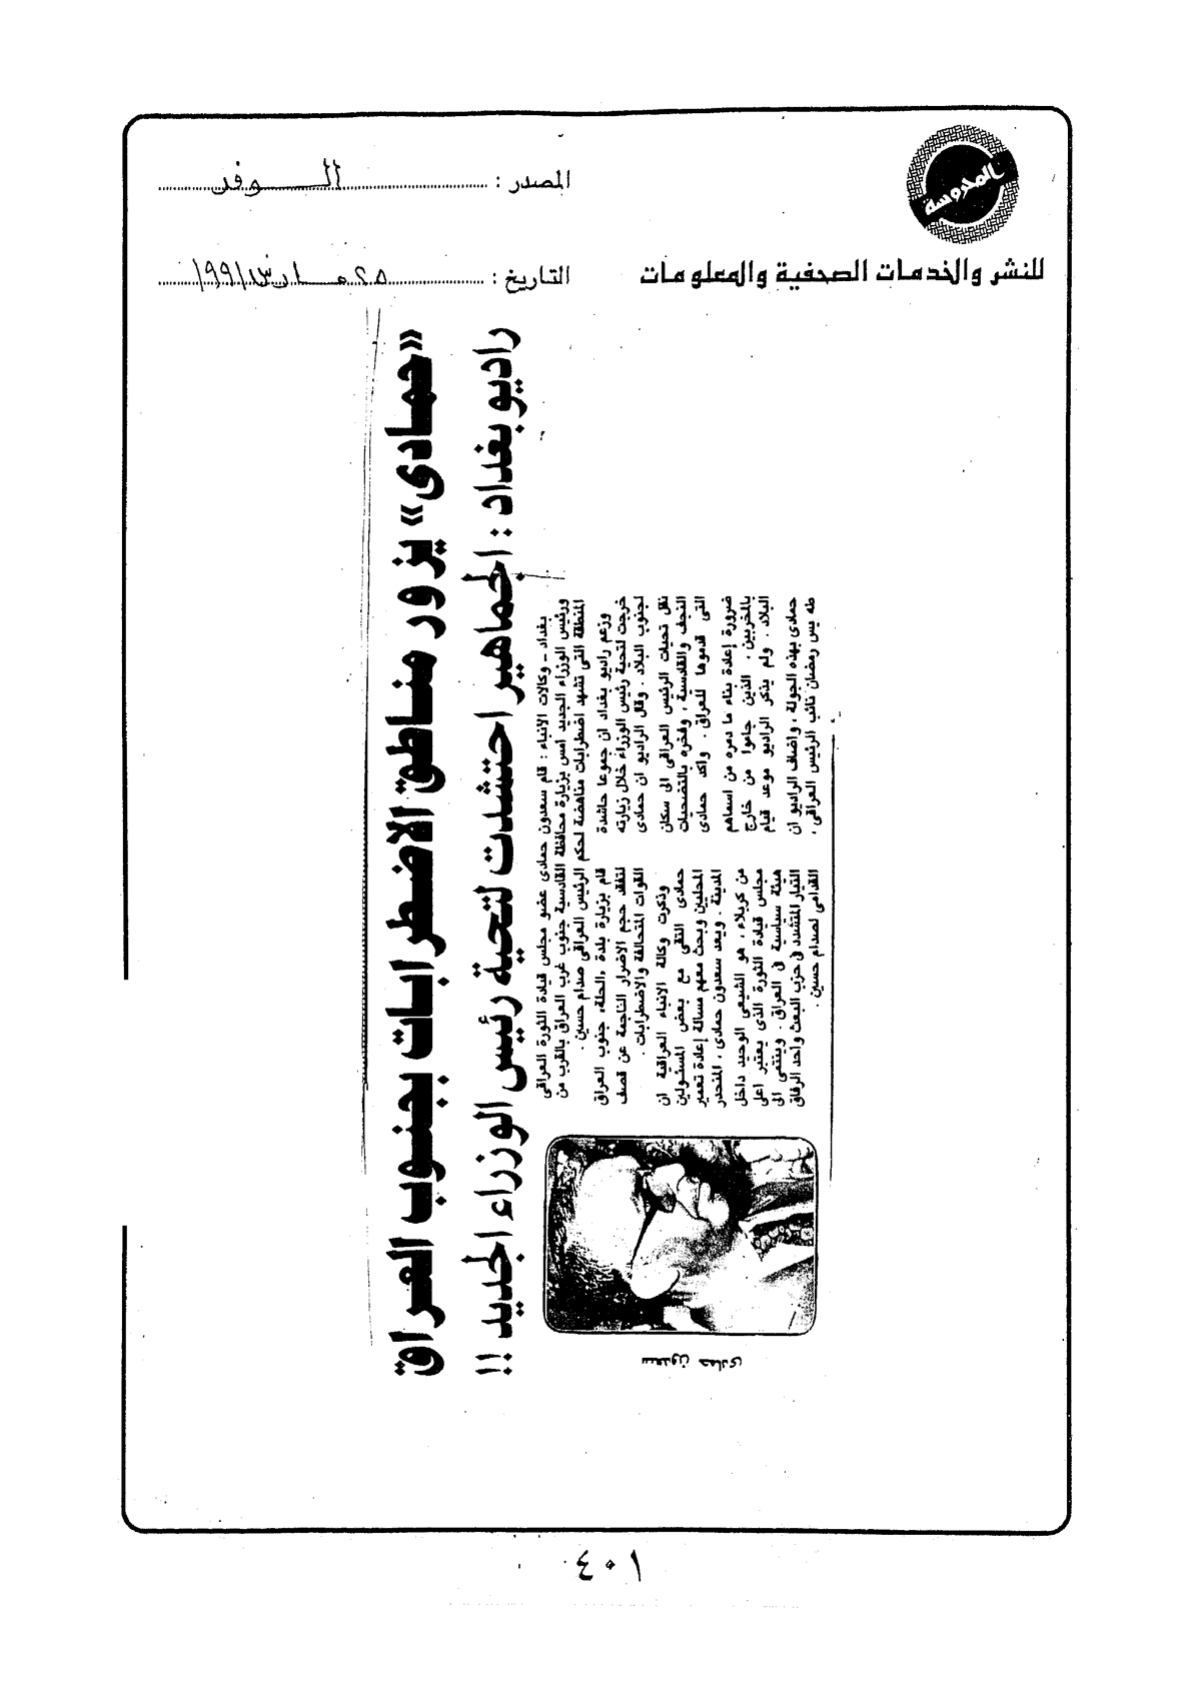 المحروسة
المصدر : الـوفد
للنشر والخدمات الصحفية والمعلومات
التاريخ : ٢٥ مارس ١٩٩١
«حمادى» يزور مناطق الاضطرابات بجنوب العراق
راديو بغداد : الجماهير احتشدت لتحية رئيس الوزراء الجديد !!
بغداد - وكالات الانباء : قام سعدون حمادى عضو مجلس قيادة الثورة العراقى
ورئيس الوزراء الجديد أمس بزيارة محافظة القادسية جنوب غرب العراق بالقرب من
المنطقة التى تشهد اضطرابات مناهضة لحكم الرئيس العراقى صدام حسين .
وزعم راديو بغداد ان جموعا حاشدة
خرجت لتحية رئيس الوزراء خلال زيارته
لجنوب البلاد . وقال الراديو ان حمادى
نقل تحيات الرئيس العراقى الى سكان
النجف والقادسية ، وفخره بالتضحيات
التى قدموها للعراق . واكد حمادى
ضرورة إعادة بناء ما دمره من اسماهم
بالمخربين ، الذين جاءوا من خارج
البلاد . ولم يذكر الراديو موعد قيام
حمادى بهذه الجولة ، واضاف الراديو ان
طه يس رمضان نائب الرئيس العراقى ،
قام بزيارة بلدة «الحلة» جنوب العراق
لتفقد حجم الاضرار الناجمة عن قصف
القوات المتحالفة والاضطرابات .
وذكرت وكالة الانباء العراقية ان
حمادى التقى مع بعض المسئولين
المحليين وبحث معهم مسالة إعادة تعمير
المدينة . ويعد سعدون حمادى ، المنحدر
من كربلاء ، هو الشيعى الوحيد داخل
مجلس قيادة الثورة الذى يعتبر اعلى
هيئة سياسية فى العراق . وينتمى الى
التيار المتشدد فى حزب البعث واحد الرفاق
القدامى لصدام حسين .
سعدون حمادى
٤٠١